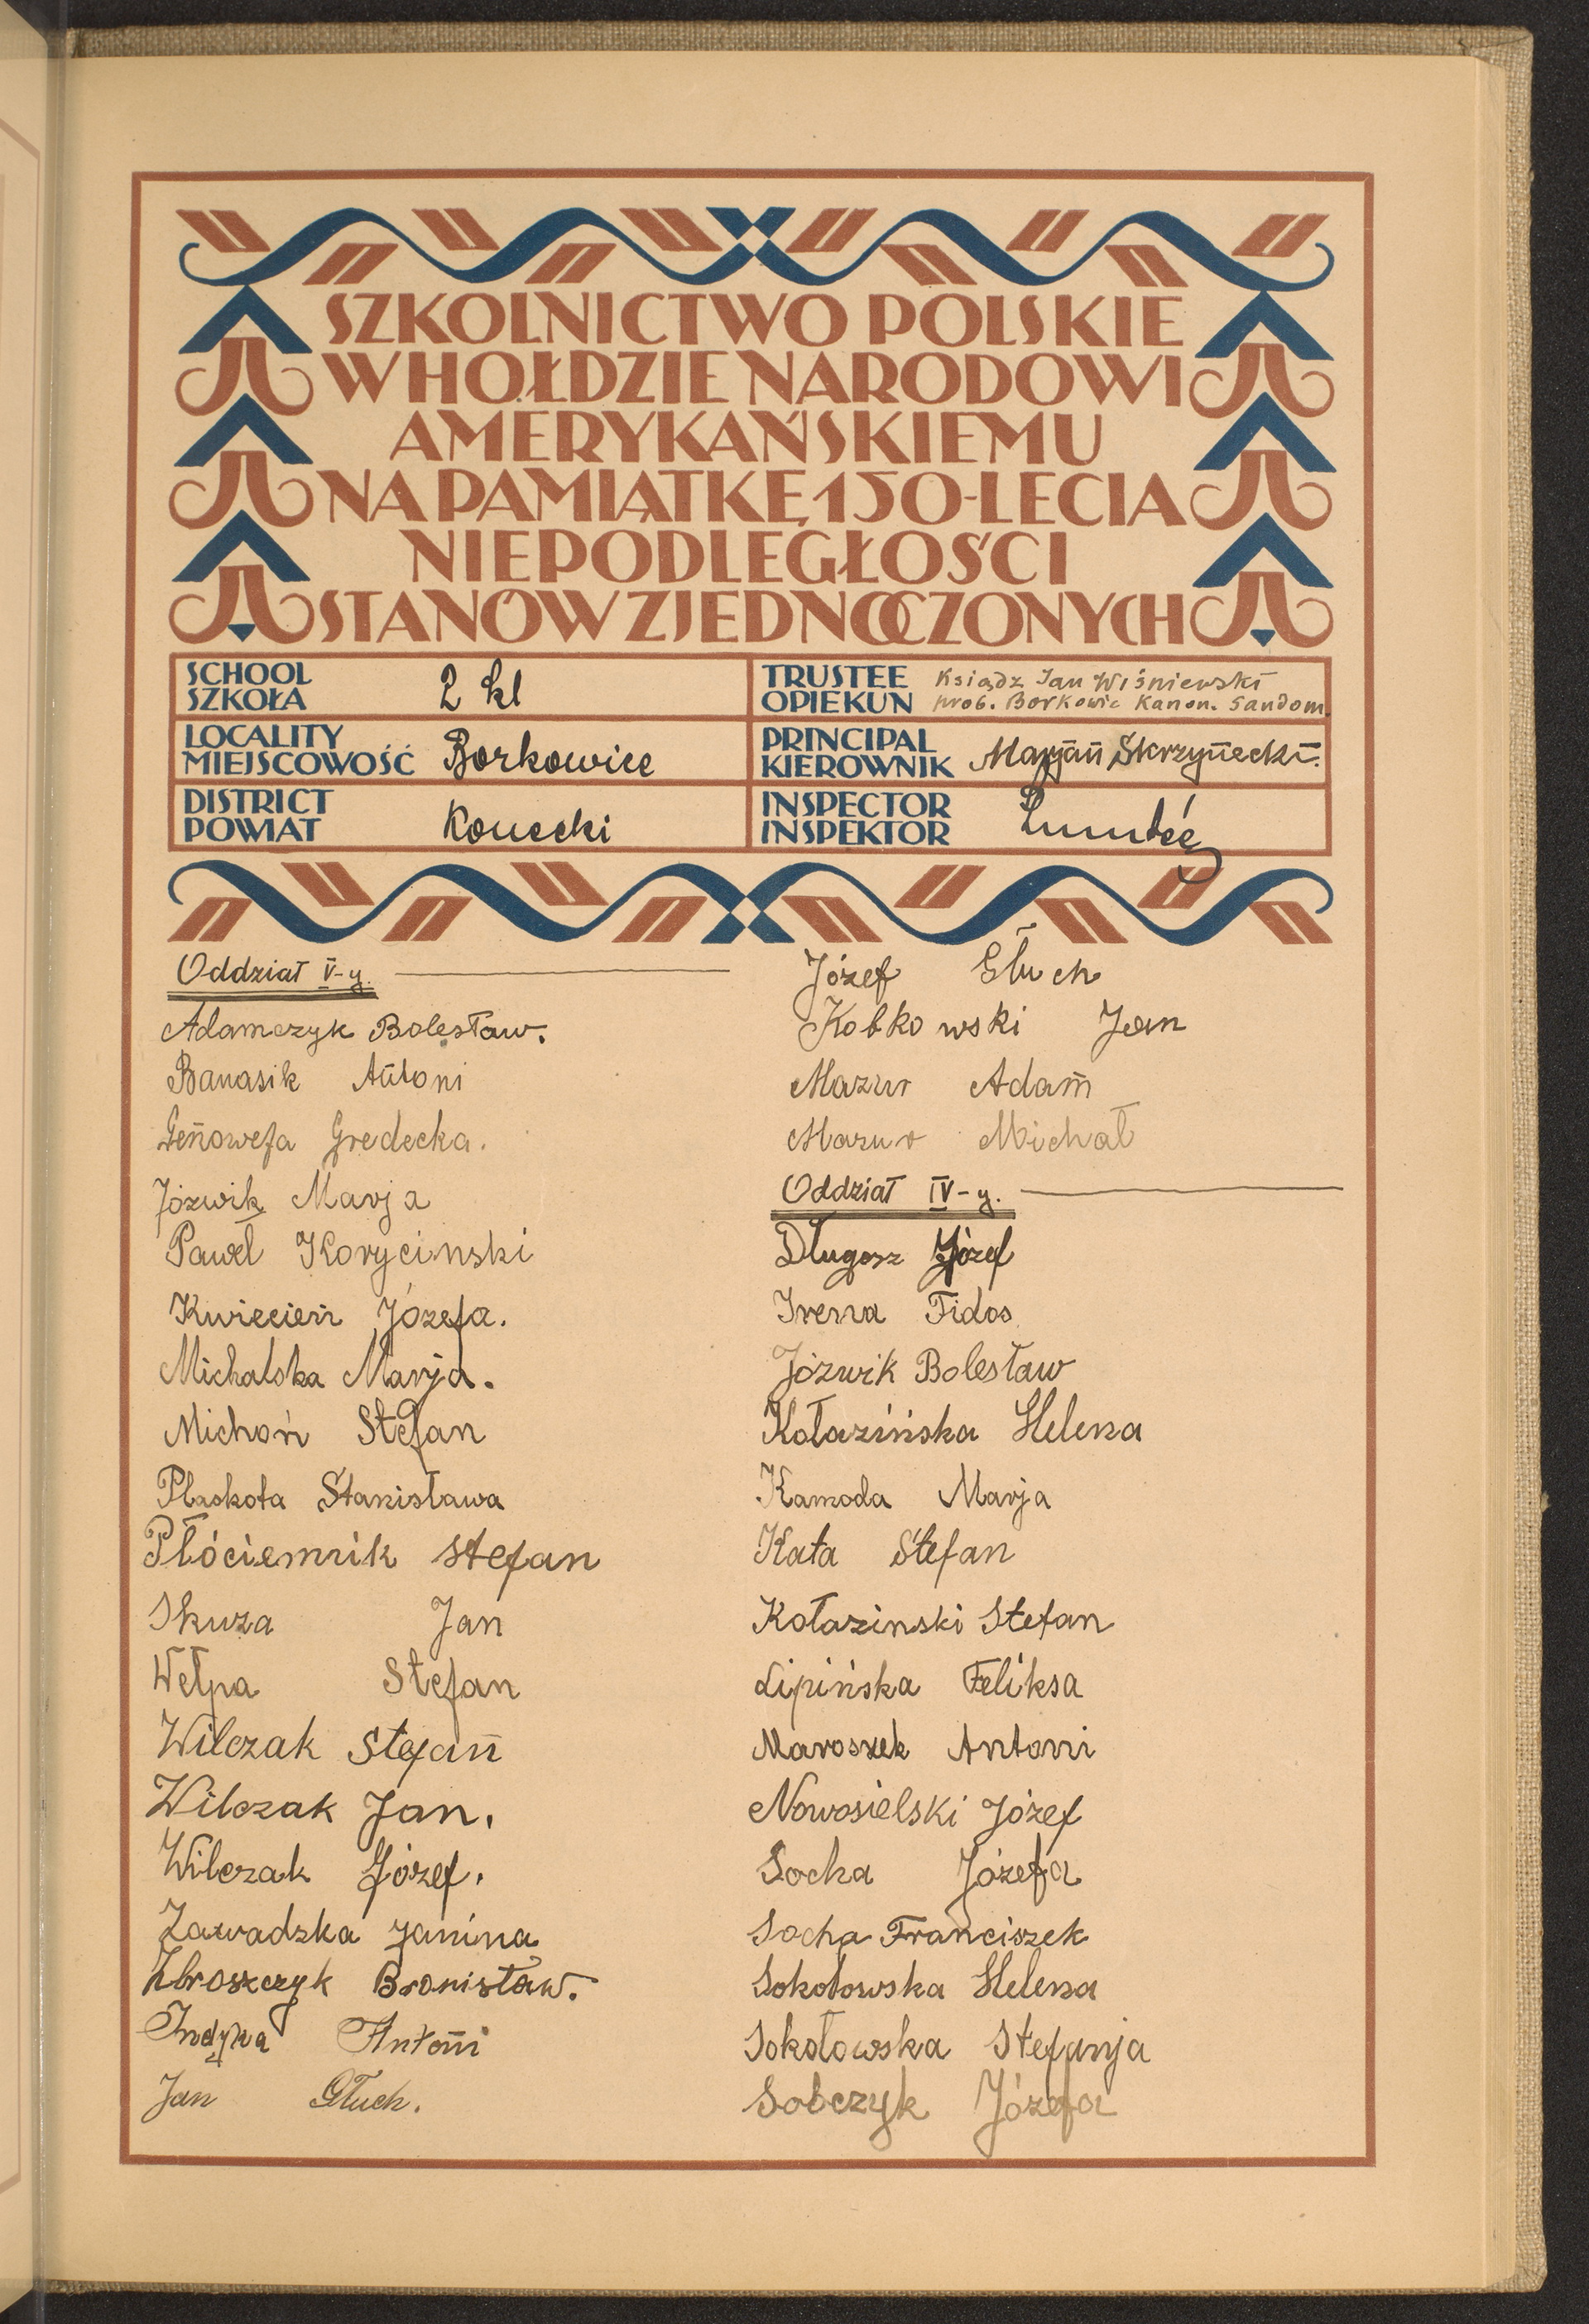 SZKOLNICTWO POLSKIE
W HOŁDZIE NARODOWI
AMERYKAŃSKIEMU
NA PAMIĄTKĘ 150-LECIA
NIEPODLEGŁOŚCI
STANÓW ZJEDNOCZONYCH
SCHOOL
SZKOŁA
2 kl
TRUSTEE
OPIEKUN
Ksiądz Jan Wiśniewski
prob. Borkowic Kanon. Sandom.
LOCALITY
MIEJSCOWOŚĆ
Borkowice
PRINCIPAL
KIEROWNIK
Marjan Skrzynecki.
DISTRICT
POWIAT
Konecki
INSPECTOR
INSPEKTOR
Oddział V-y.
Adamczyk Bolesław.
Banasik Antoni
Genowefa Gredecka.
Józwik Marja
Paweł Korycinski
Kwiecień Józefa.
Michalska Marja.
Michoń Stefan
Płaskota Stanisława
Płóciennik Stefan
Skuza Jan
Wełpa Stefan
Wilczak Stefan
Wilczak Jan.
Wilczak Józef.
Zawadzka Janina
Zbroszczyk Bronisław.
Indyka Antoni
Jan Głuch.
Józef Głuch
Kobkowski Jan
Mazur Adam
Mazur Michał
Oddział IV-y.
Długosz Józef
Irena Fidos
Józwik Bolesław
Kołazińska Helena
Kamoda Marja
Kata Stefan
Kołazinski Stefan
Lipińska Feliksa
Maroszek Antoni
Nowosielski Józef
Socha Józefa
Socha Franciszek
Sokołowska Helena
Sokołowska Stefanja
Sobczyk Józefa